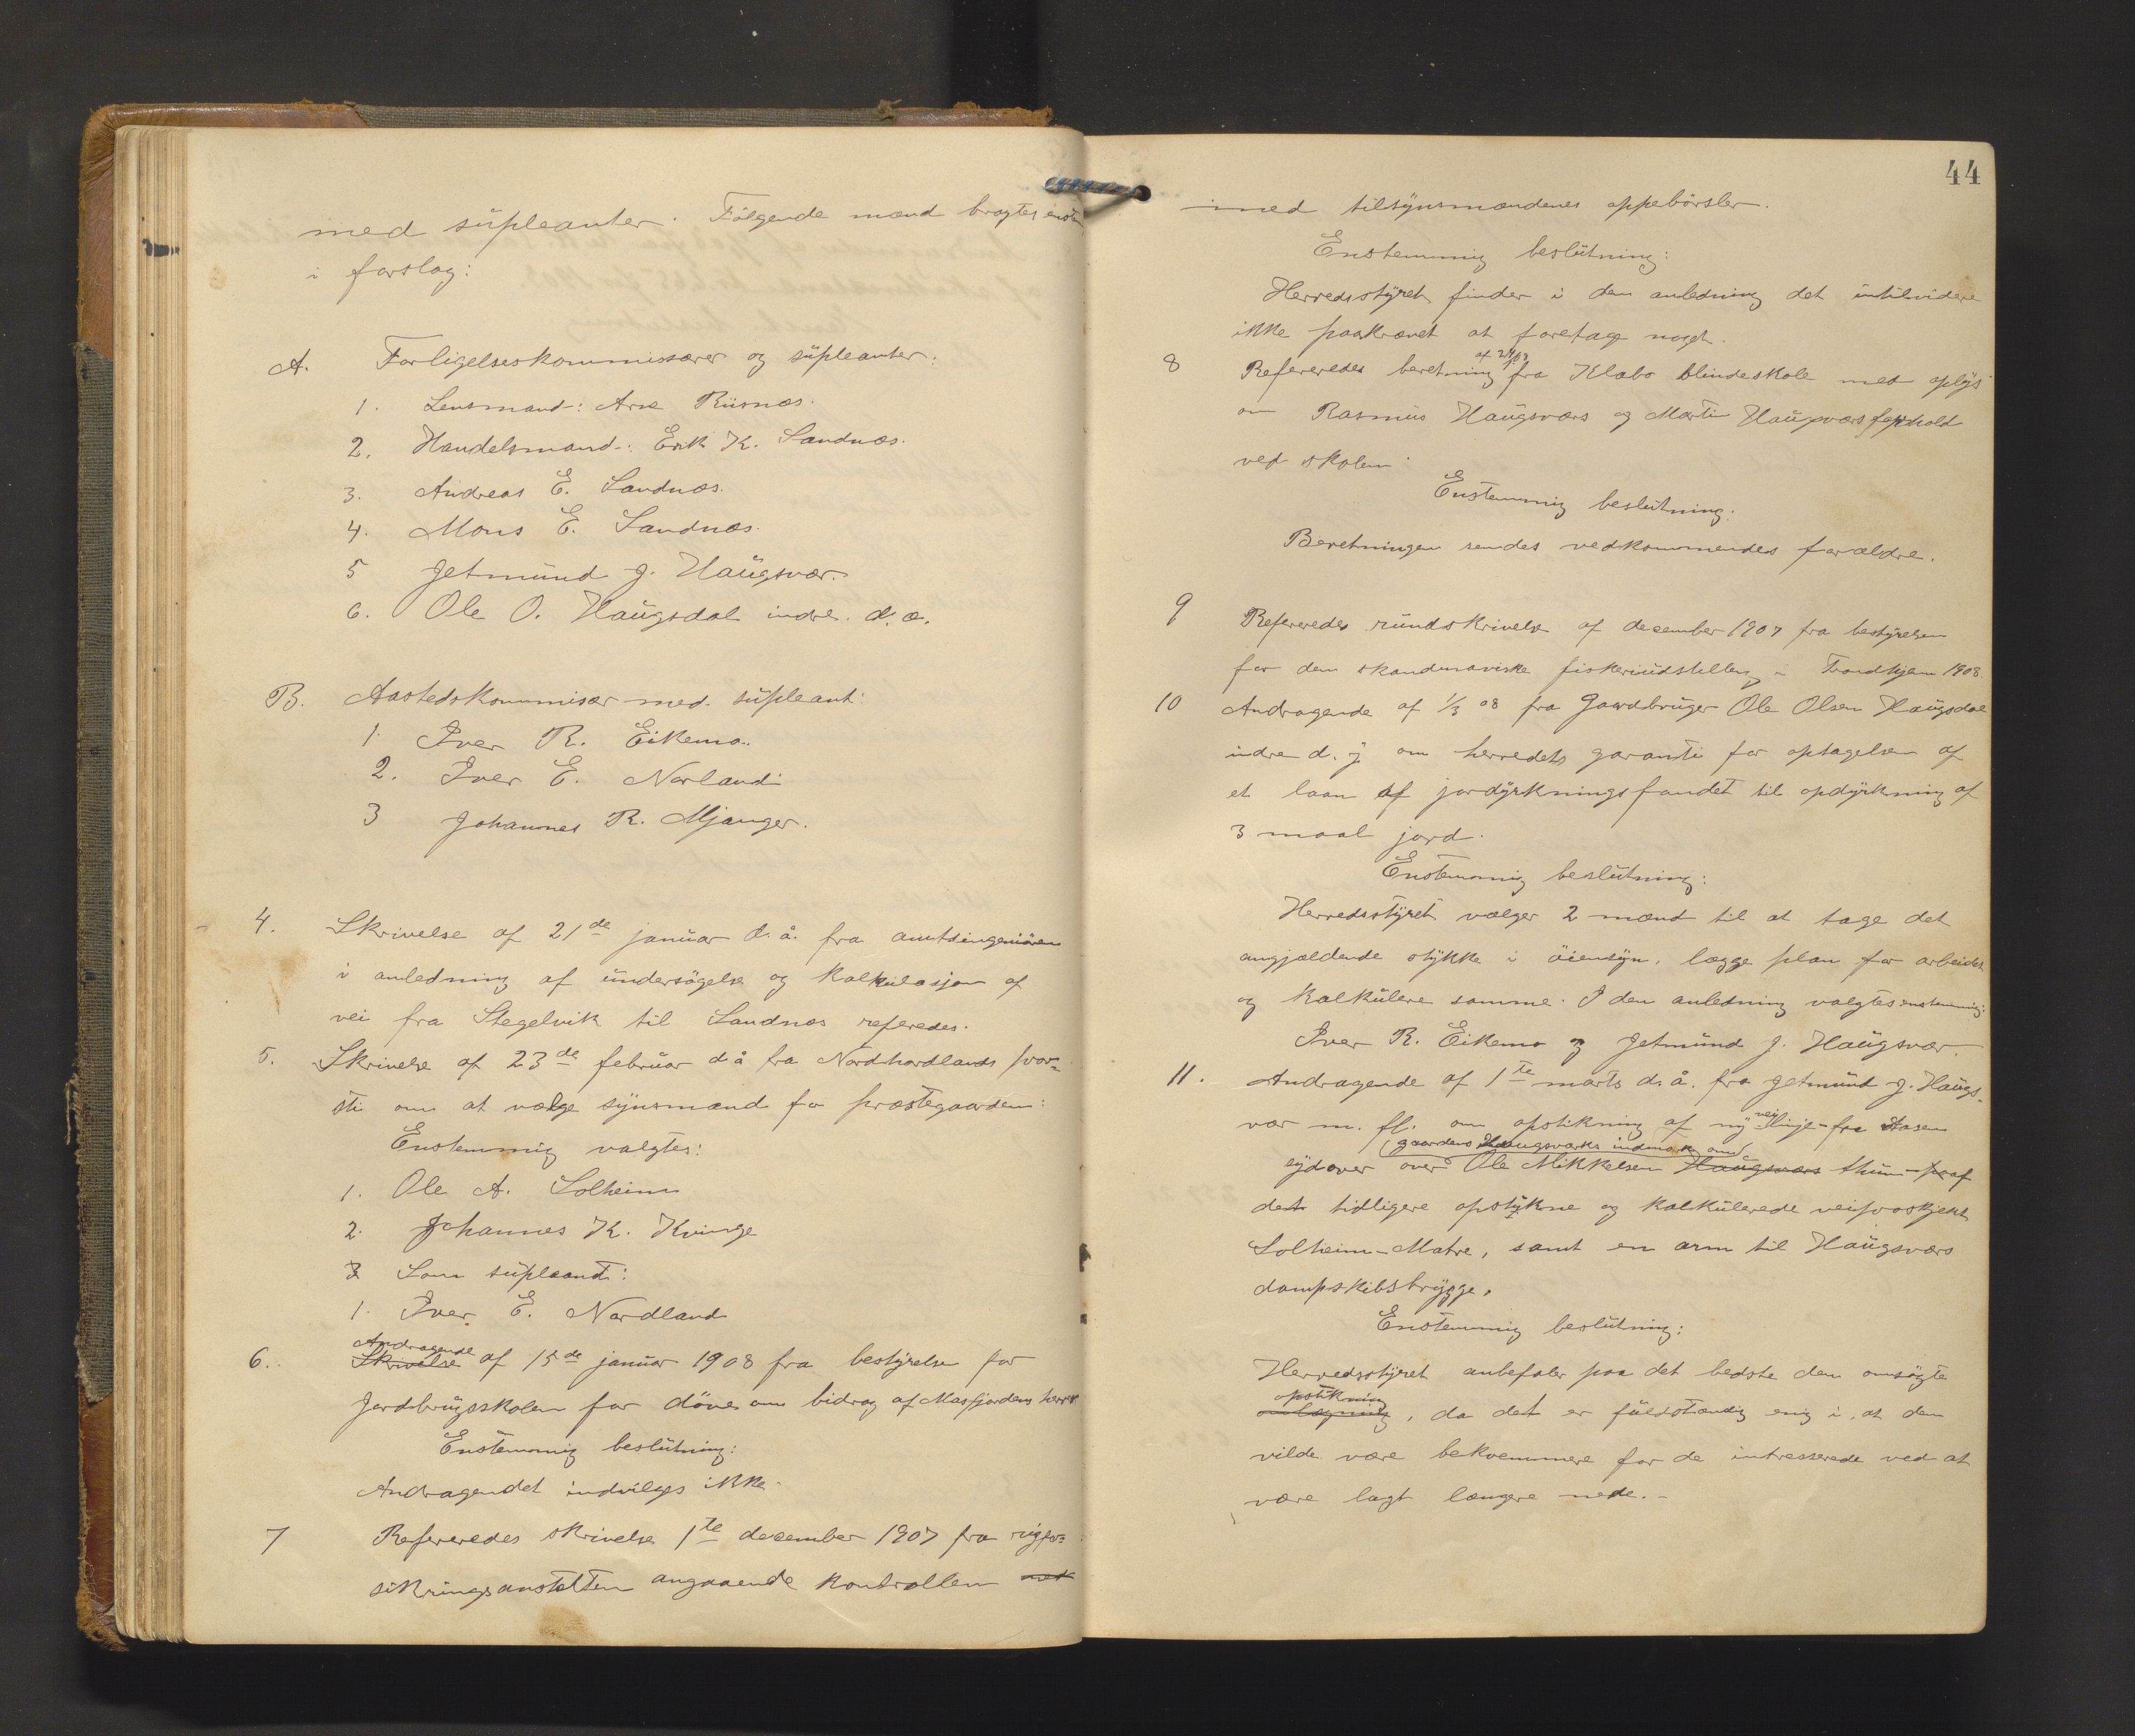 med süpleanter. Følgende mænd bragtes enst
i forslag:
A. Forligelseskommissærer og süpleanter:
1. Lensmand: Arne Riisnæs.
2. Handelsmand: Erik K. Sandnæs.
3. Andreas E. Sandnæs.
4. Mons E. Sandnæs.
5 Jetmünd J. Haügsvær.
6. Ole O. Haügsdal indre. d. æ.
B. Aastedskommisær med süpleant:
1. Iver R. Eikemo.
2. Iver E. Norland
3 Johannes R. Mjanger.
4. Skrivelse af 21de janüar d. å. fra amtsingeniören
i anledning af ündersögelse og kalkulasjon af
vei fra Stegelvik til Sandnæs referedes.
5. Skrivelse af 23de febrüar d å fra Nordhordlands prov=
sti om at vælge synsmænd for præstegaarden:
Enstemmig valgtes:
1. Ole A. Solheim
2. Johannes K. Kvinge
Som süpleant:
1. Iver E. Nordland
Andragende
6. Skrivelse af 15de janüar 1908 fra bestyrelse for
Jordbrügsskolen for döve om bidrag af Masfjordens herre
Enstemmig beslütning:
Andragendet indvilges ikke.
7 Refereredes skrivelse 1te desember 1907 fra rigsfor=
sikringsanstalten angaaende kontrollen med
44
med tilsynsmændenes oppebörsler.
Enstemmig beslütning:
Herredsstyret finder i den anledning det intilvidere
ikke paakrævet at foretage noget.
8 Refereredes beretning fra Klæbo blindeskole med oplys
om Rasmüs Haügsværs og Martin Haügsværs ophold
ved skolen.
Enstemmig beslütning:
Beretningen sendes vedkommendes forældre.
9 Refereredes ründskrivelse af desember 1907 fra bestyrelsen
for den skandinaviske fiskeriüdstilling i Trondhjem 1908
10 Andragende af 1/3 08 fra Gaardbrüger Ole Olsen Haügsdal
indre d. y. om herredets garanti for optagelsen af
et laan af jordyrkningsfondet til opdyrkning af
3 maal jord.
Enstemmig beslütning:
Herredsstyret vælger 2 mænd til at tage det
angjældende stykke i öiensyn, lægge plan for arbeidet
og kalkülere samme. I den anledning valgtes enstemmig:
Iver R. Eikemo og Jetmünd J. Haügsvær.
11. Andragende af 1te marts d. å. fra Jetmünd J. Haügs=
vei
vær m. fl. om opstikning af ny linje fra Aasen
(gaardens Haugsværs indmark om)
sydover over Ole Mikkelsen Haügsværs thun af
det tidligere opstükne og kalkülerede veiproskjekt
Solheim-Matre, samt en arm til Haügsværs
dampskibsbrygge.
Enstemmig beslütning:
Herredsstyret anbefaler paa det bedste den omsögte
opstikning
omlægning, da det er füldstændig enig i, at den
vilde være bekvemmere for de intresserede ved at
være lagt længere nede.-